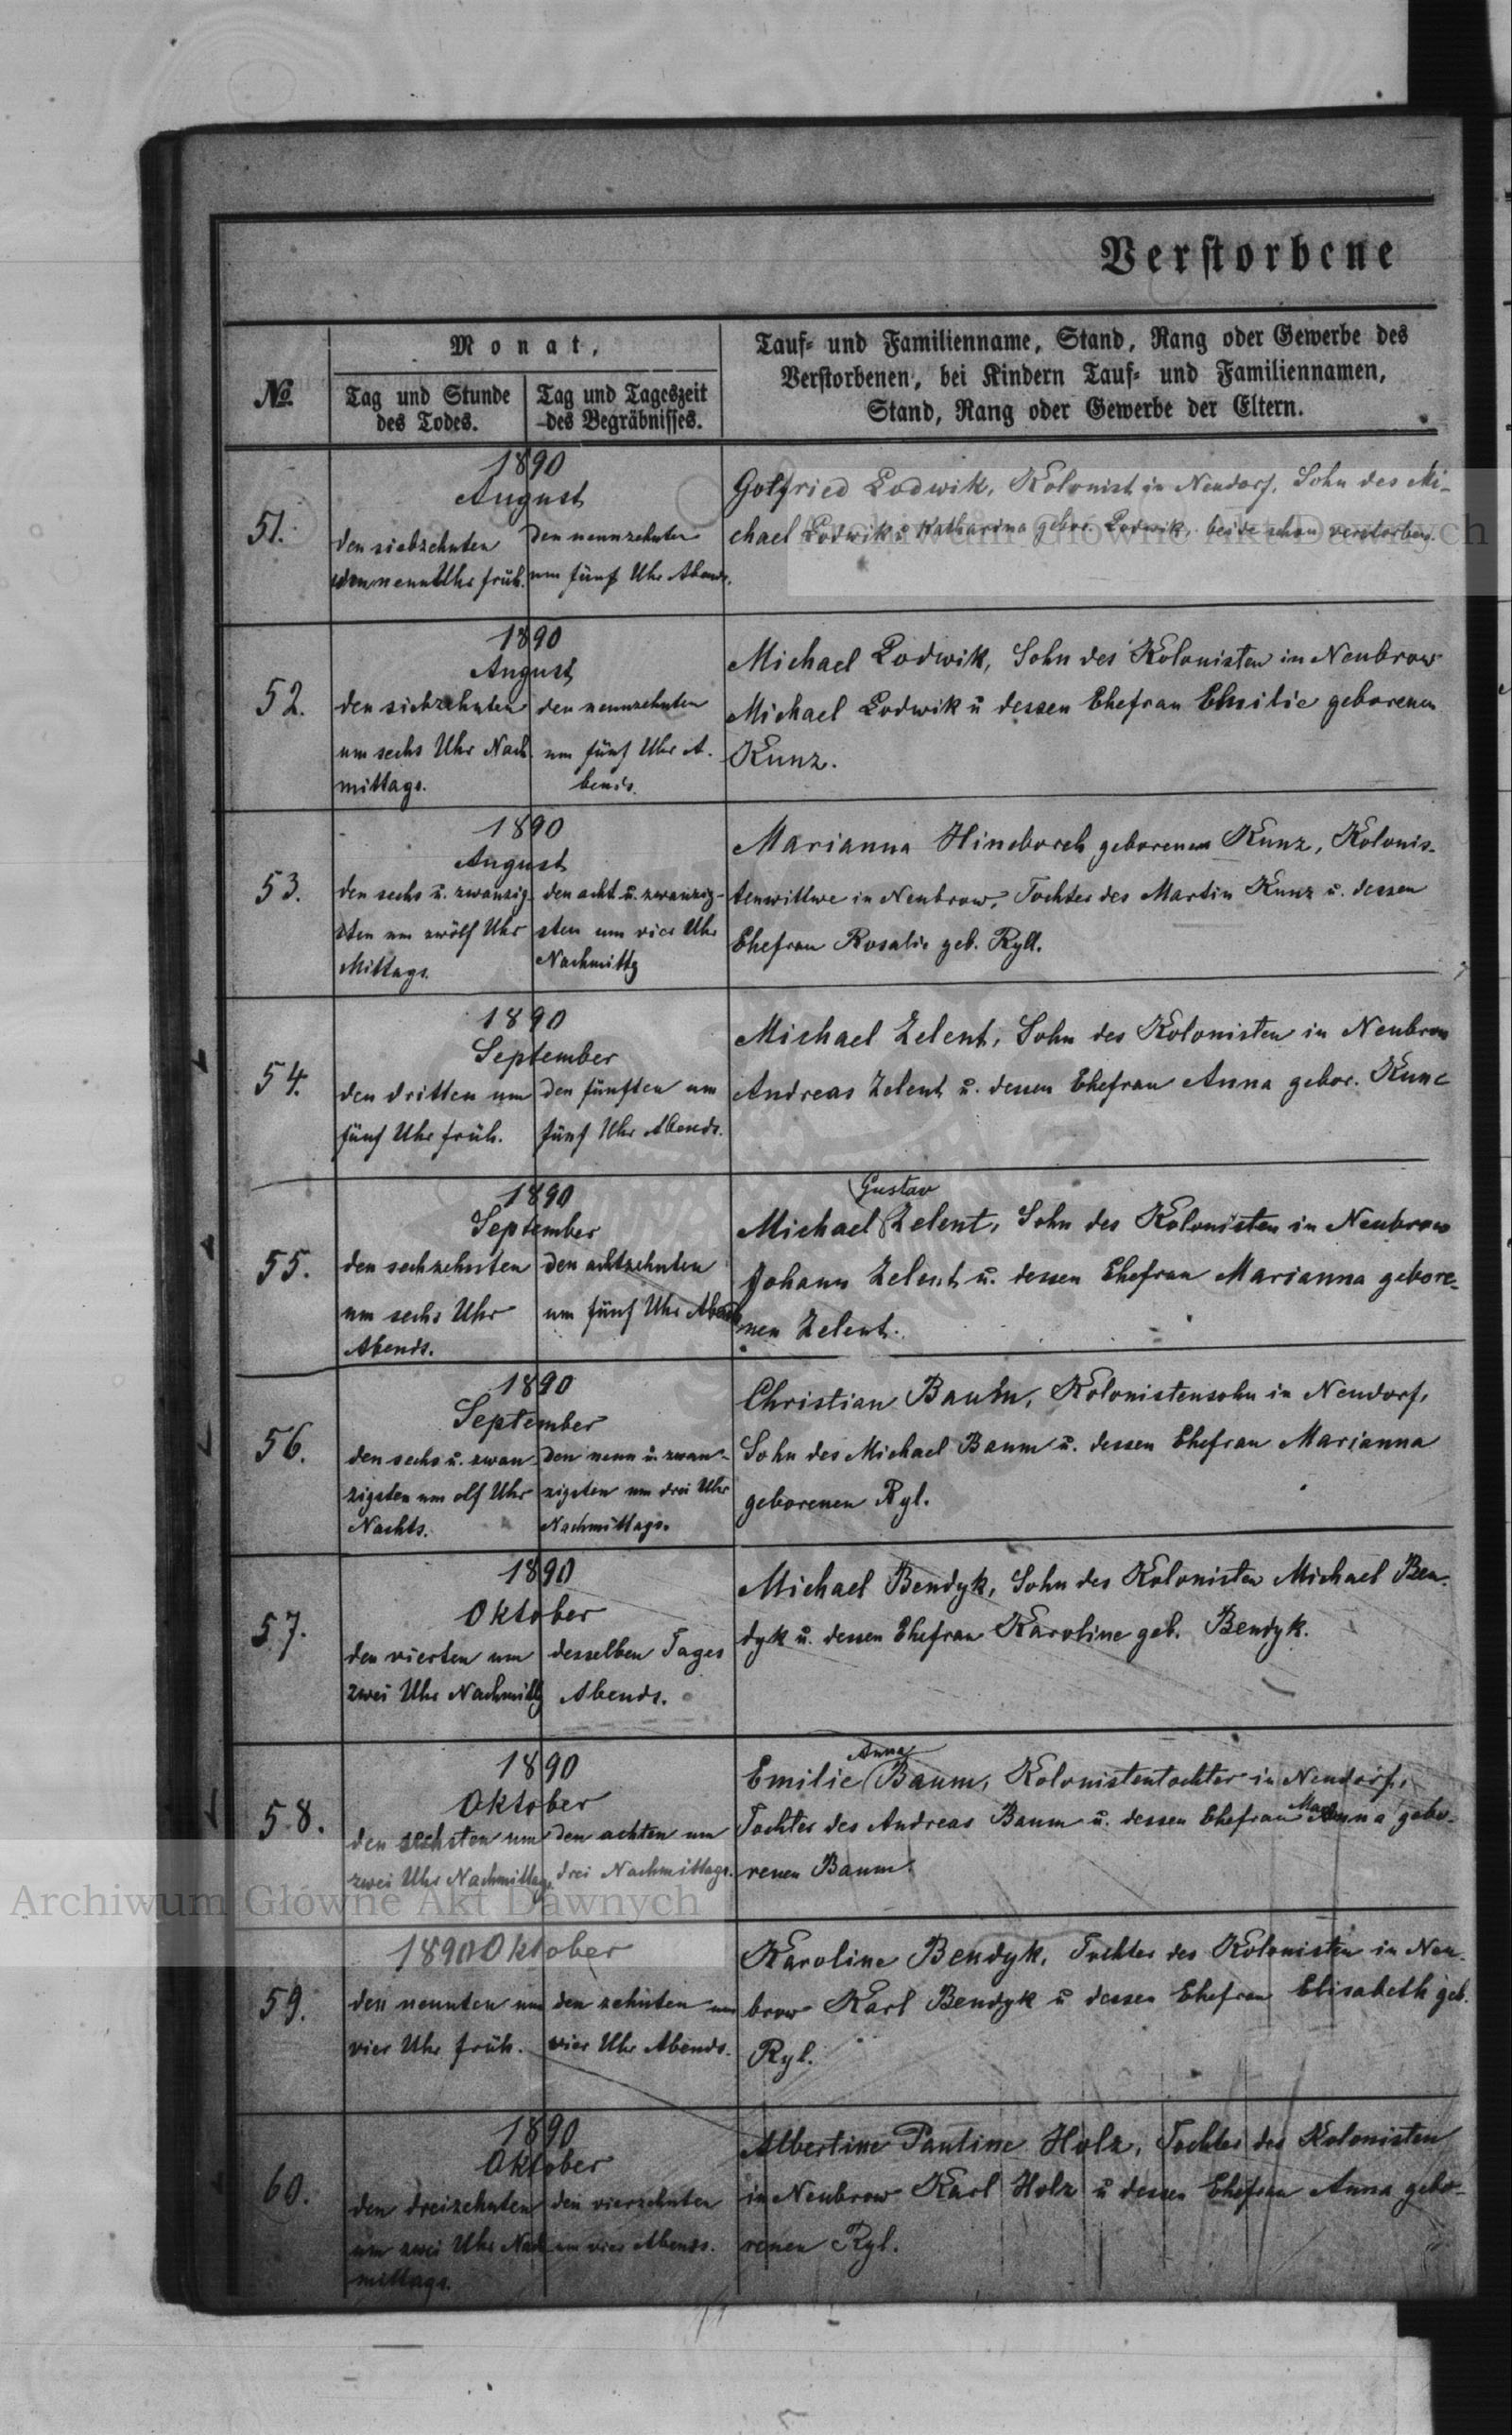 Verstorbene
№
Monat,
Tag und Stunde
des Todes.
Tag und Tageszeit
des Begräbnisses.
Tauf- und Familienname, Stand, Rang oder Gewerbe des
Verstorbenen, bei Kindern Tauf- und Familiennamen,
Stand, Rang oder Gewerbe der Eltern.
51.
1890
August
den siebzehnten
neun Uhr früh.
den neunzehnten
um fünf Uhr Abends.
Gotfried Lodwik, Kolonist in Neudorf, Sohn des Mi-
chael Lodwik u Katharina gebor. Lodwik, beide schon verstorben.
Archiwum Główne Akt Dawnych
52.
1890
August
den siebzehnten
um sechs Uhr Nach
mittags.
den neunzehnten
um fünf Uhr A-
bends.
Michael Lodwik, Sohn des Kolonisten in Neubrow
Michael Lodwik u dessen Ehefrau Emilie geborenen
Kunz.
53.
1890
August
den sechs u. zwanzig
sten um zwölf Uhr
Mittags.
den acht u. zwanzig-
sten um vier Uhr
Nachmittg
Marianna Hineborch geborenen Kunz, Kolonis-
tenwittwe in Neubrow, Tochter des Martin Kunz u. dessen
Ehefrau Rosalie geb. Ryll.
54.
1890
September
den dritten um
fünf Uhr früh.
den fünften um
fünf Uhr Abends.
Michael Zelent, Sohn des Kolonisten in Neubrow
Andreas Zelent u. dessen Ehefrau Anna gebor. Kunc
55.
1890
September
den sechzehnten
um sechs Uhr
Abends.
den achtzehnten
um fünf Uhr Abends
Gustav
Michael Zelent, Sohn des Kolonisten in Neubrow
Johann Zelent u. dessen Ehefrau Marianna gebore-
nen Zelent.
56.
1890
September
den sechs u. zwan-
zigsten um elf Uhr
Nachts.
den neun u. zwan-
zigsten um drei Uhr
Nachmittags.
Christian Baum, Kolonistensohn in Neudorf,
Sohn des Michael Baum u. dessen Ehefrau Marianna
geborenen Ryl.
57.
1890
Oktober
den vierten um
zwei Uhr Nachmittg
desselben Tages
Abends.
Michael Bendyk, Sohn des Kolonisten Michael Ben-
dyk u. dessen Ehefrau Karoline geb. Bendyk.
58.
1890
Oktober
den sechsten um
zwei Uhr Nachmittags.
den achten um
drei Nachmittags.
Anna
Emilie Baum, Kolonistentochter in Neudorf,
Tochter des Andreas Baum u. dessen Ehefrau Anna gebo-
renen Baum.
Archiwum Główne Akt Dawnych
59.
1890 Oktober
den neunten um
vier Uhr früh.
den zehnten um
vier Uhr Abends.
Karoline Bendyk, Tochter des Kolonisten in Neu-
brow Karl Bendyk u dessen Ehefrau Elisabeth geb.
Ryl.
60.
1890
Oktober
den dreizehnten
um zwei Uhr Nach
mittags.
den vierzehnten
um vier Abends.
Albertine Pauline Holz, Tochter des Kolonisten
in Neubrow Karl Holz u dessen Ehefrau Anna gebo-
renen Ryl.